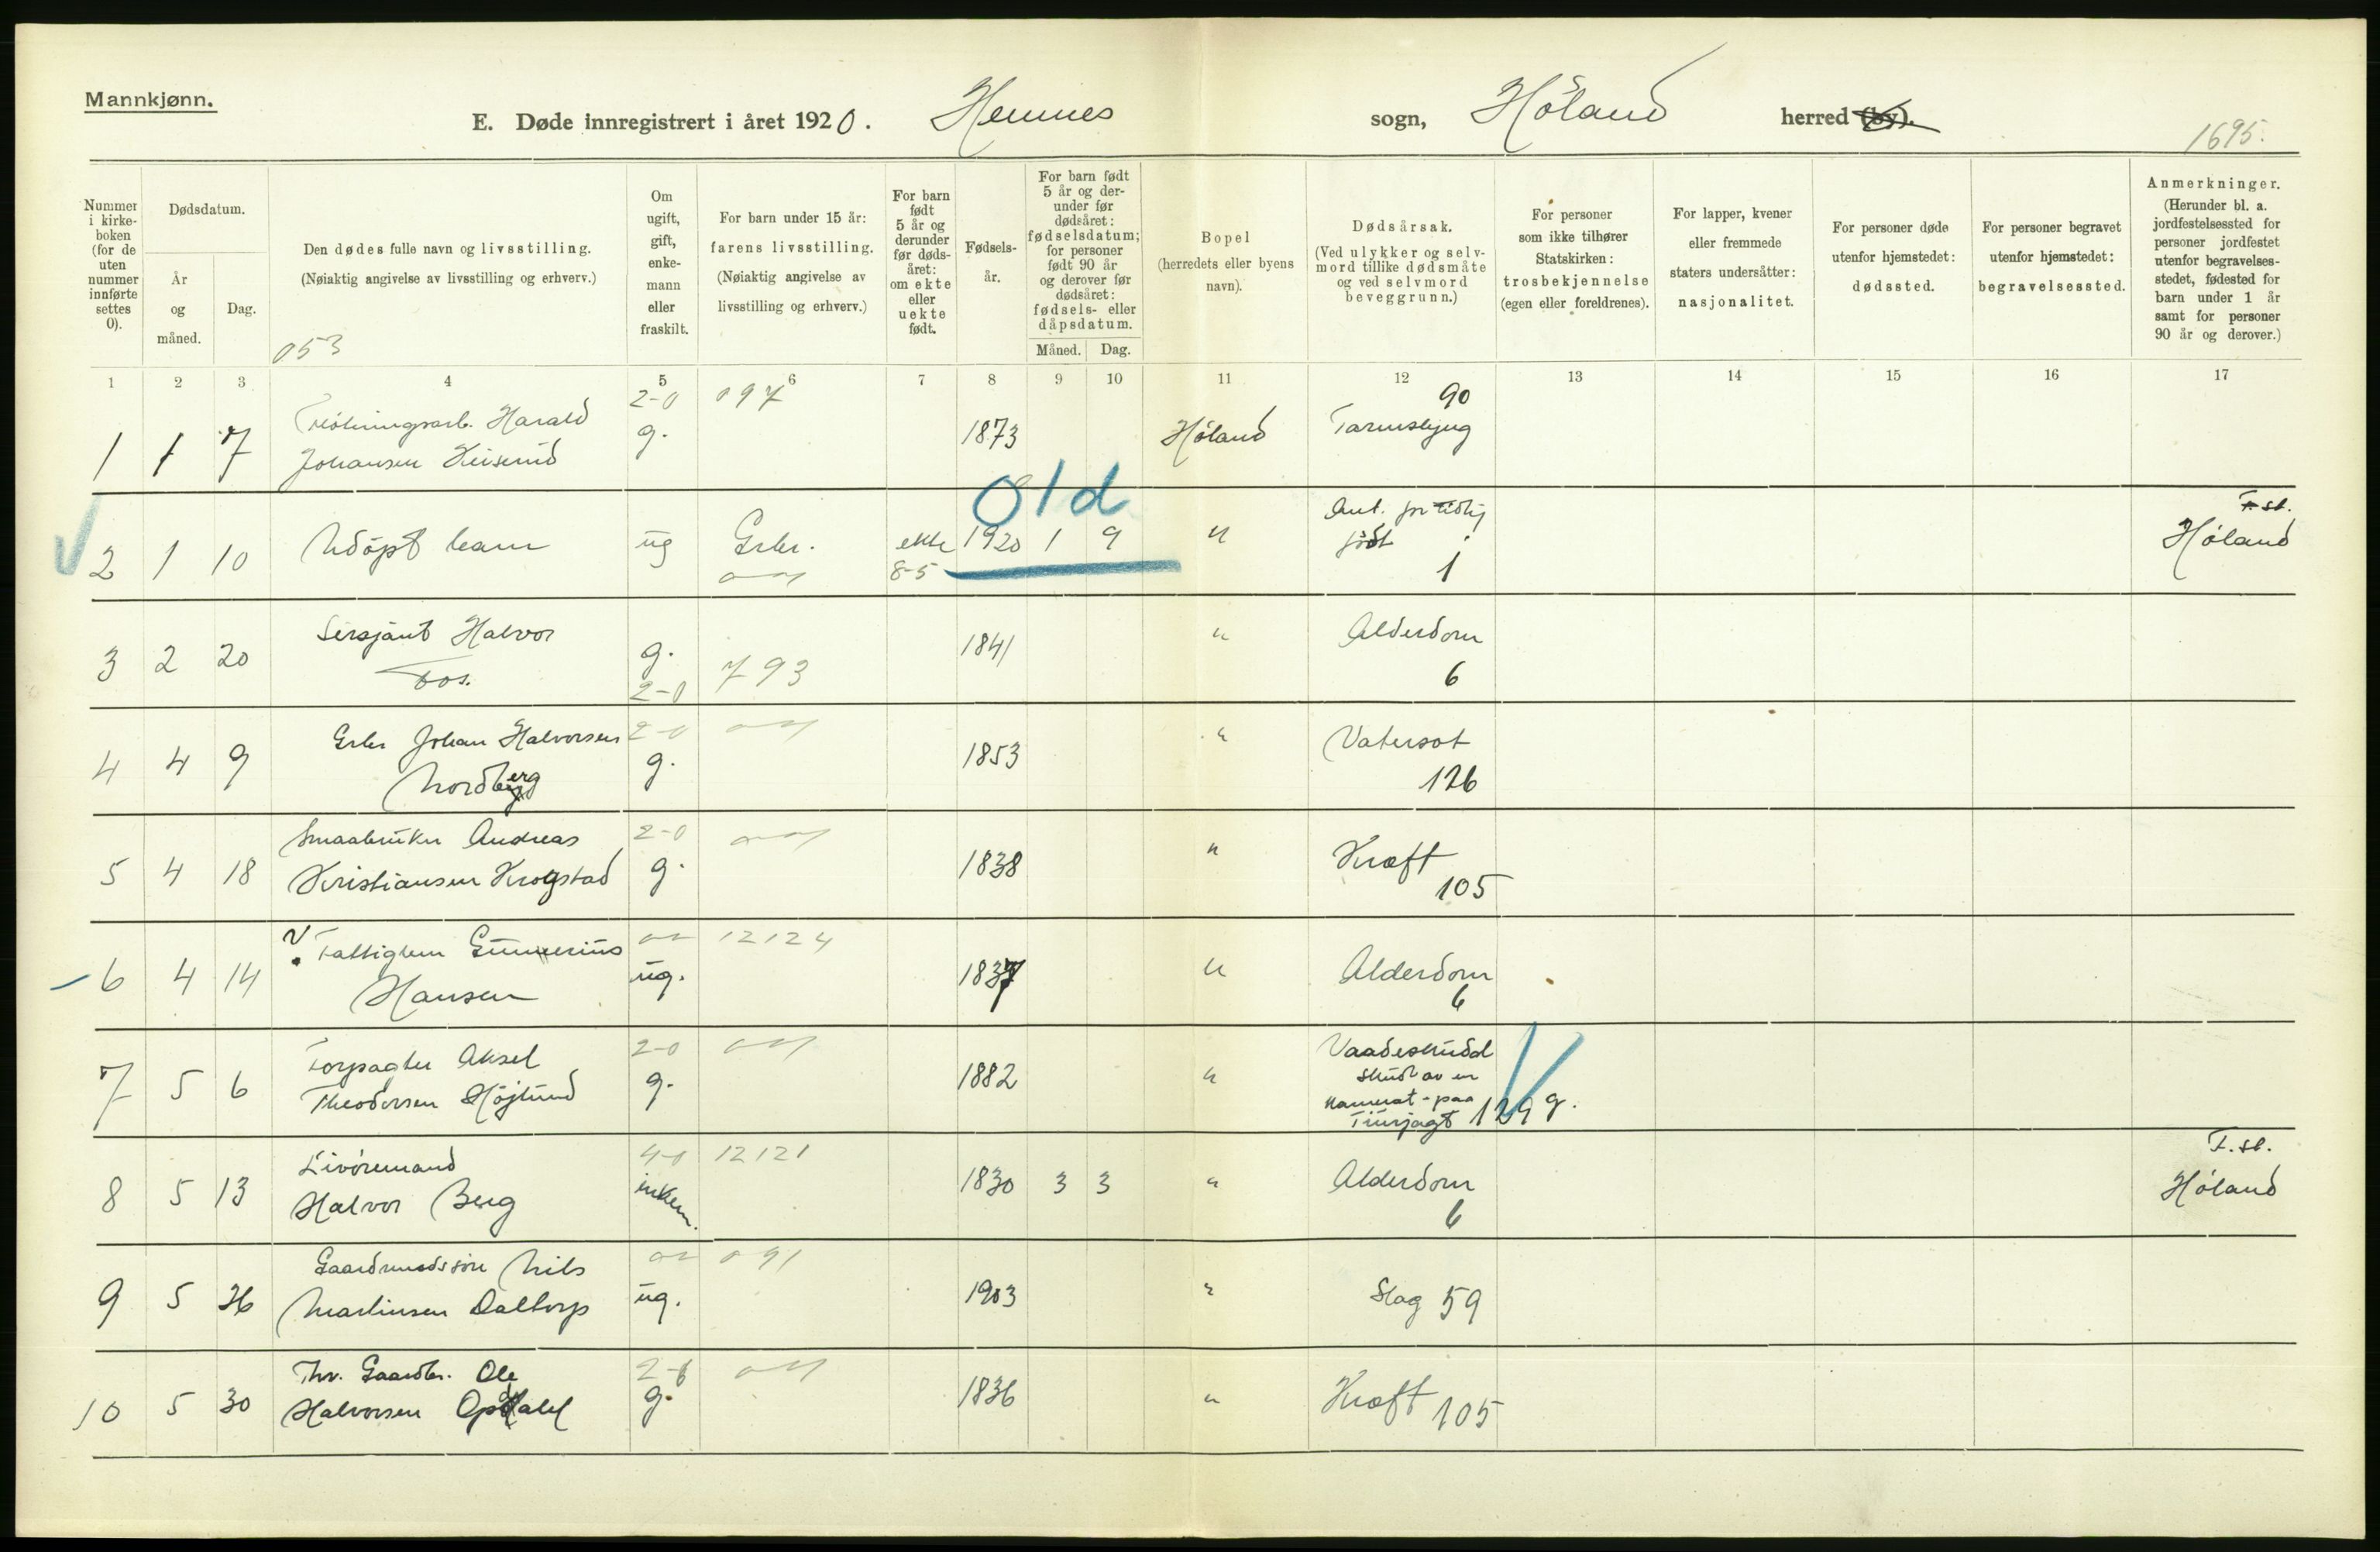 Mannkjønn.
E. Døde innregistrert i året 1920. Hemnes sogn, Høland herred (by).
1695.
Nummer i kirke-boken (for de uten nummer innførte settes 0).
Dødsdatum.
År og måned.
Dag.
Den dødes fulle navn og livsstilling.
(Nøiaktig angivelse av livsstilling og erhverv.)
053
Om ugift, gift, enke-mann eller fraskilt.
For barn under 15 år:
farens livsstilling.
(Nøiaktig angivelse av livsstilling og erhverv.)
For barn født 5 år og derunder før døds-året: om ekte eller uekte født.
Fødsels-år.
For barn født 5 år og der-under før dødsåret: fødselsdatum; for personer født 90 år og derover før dødsåret: fødsels- eller dåpsdatum.
Måned. Dag.
Bopel
(herredets eller byens navn).
Dødsårsak.
(Ved ulykker og selv-mord tillike dødsmåte og ved selvmord beveggrunn.)
For personer som ikke tilhører Statskirken: trosbekjennelse (egen eller foreldrenes).
For lapper, kvener eller fremmede staters undersåtter: nasjonalitet.
For personer døde utenfor hjemstedet: dødssted.
For personer begravet utenfor hjemstedet: begravelsessted.
Anmerkninger.
(Herunder bl. a. jordfestelsessted for personer jordfestet utenfor begravelses-stedet, fødested for barn under 1 år samt for personer 90 år og derover.)
1 2 3 4 5 6 7 8 9 10 11 12 13 14 15 16 17
2-0 097 90
1 1 7 Fløtningsarb. Harald g. 1873 Høland Tarmslyng
Johansen
Old
2 1 10 Udøpt barn ug Gbr. ekte 1920 1 9 " Ant. for tidlig F.st.
8-5 født 1 Høland
3 2 20 Sersjant Halvor g. 1841 " Alderdom
Fos. 2-0 793 6
4 4 9 Gbr Johan Halvorsen 2-0 g. 1853 " Vatersot
Nordberg 126
5 4 18 Smaabruker Andreas 2-0 g. 1838 " Kræft
Kristiansen Krogstad 105
6 4 14 Fattiglem Gunnerius 12124 ug. 1837 " Alderdom
Hansen 6
7 5 6 Forpagter Aksel 2-0 g. 1882 " Vaadeskudd
Theodorsen Højlund skudt av en
kamerat - paa
Tiurjagt 129 g.
8 5 13 Livøremand 4-0 12121 enkem. 1830 3 3 " Alderdom F.st.
Halvor Berg 6 Høland
9 5 26 Gaardmandssøn Nils 091 ug. 1903 " Slag 59
Martinsen Daltorp
10 5 30 Fhv. Gaardbr. Ole g. 1836 " Kræft 105
Halvorsen Opdahl